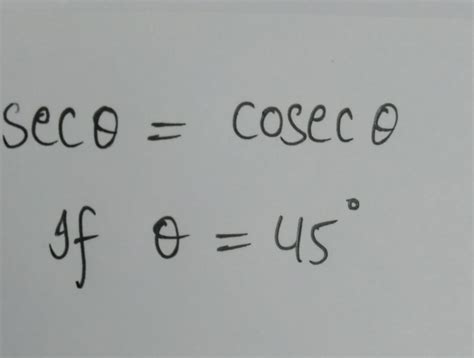 secθ = cosecθ
If θ = 45°